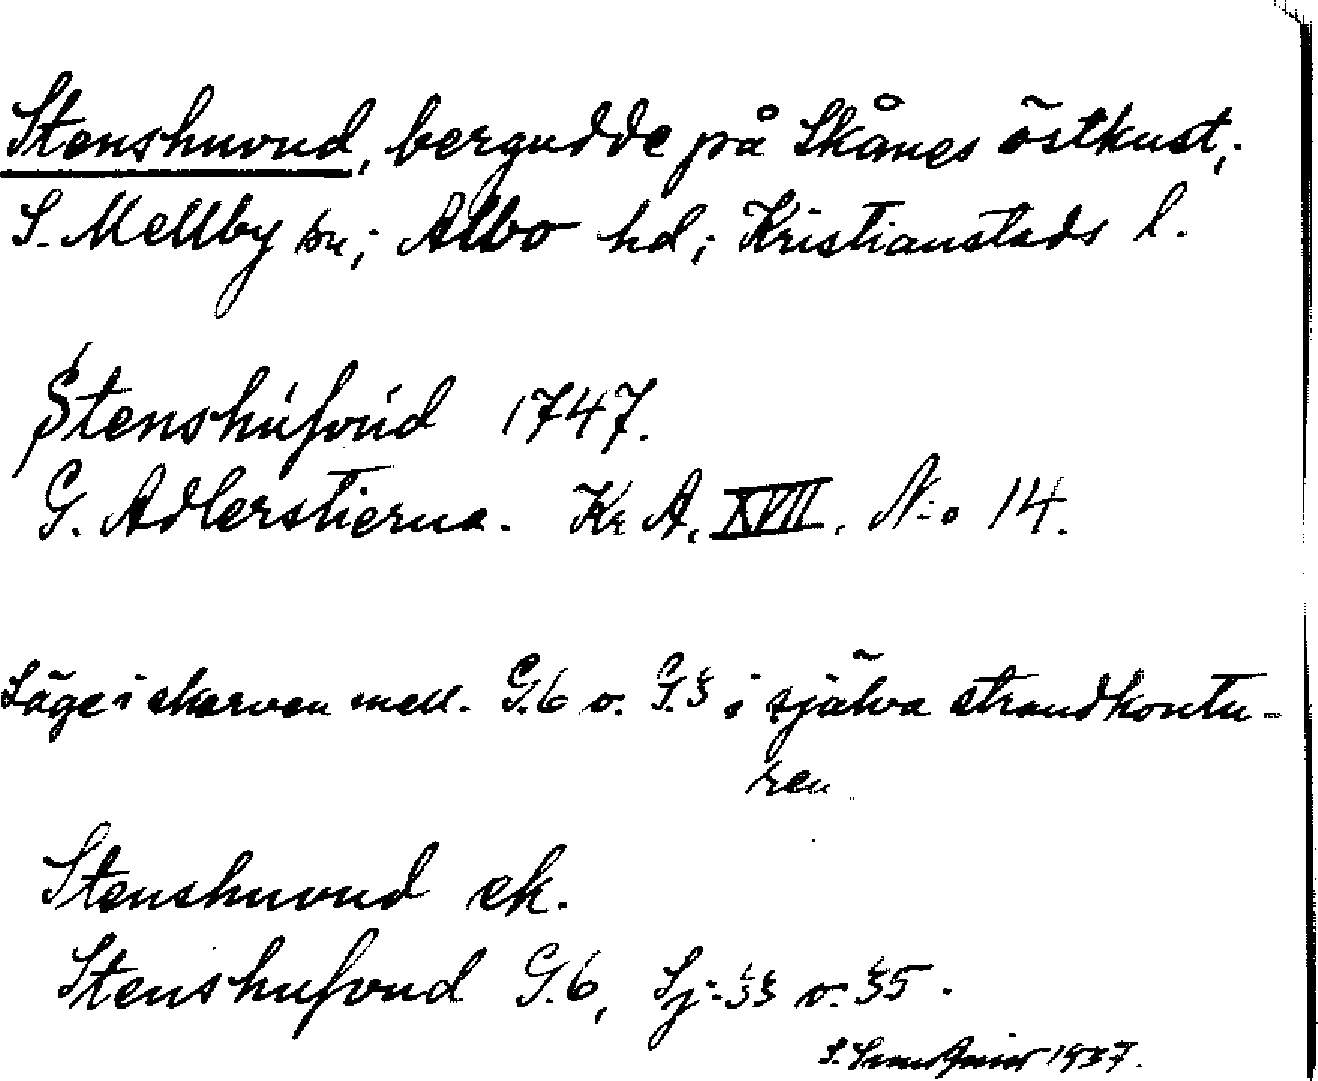 Stenshuvud, bergudde på Skånes östkust,
S. Mellby sn; Albo hd; Kristianstads l.
Stenshúfvúd 1747.
G. Adlerstierna. Kr A. XVII. N:o 14.
Läge i skarven mell. G.6 o. G.3 i själva strandkontu-
ren
Stenshuvud ek.
Stenshufvud G.6, Sj. 33 o. 35.
1937.